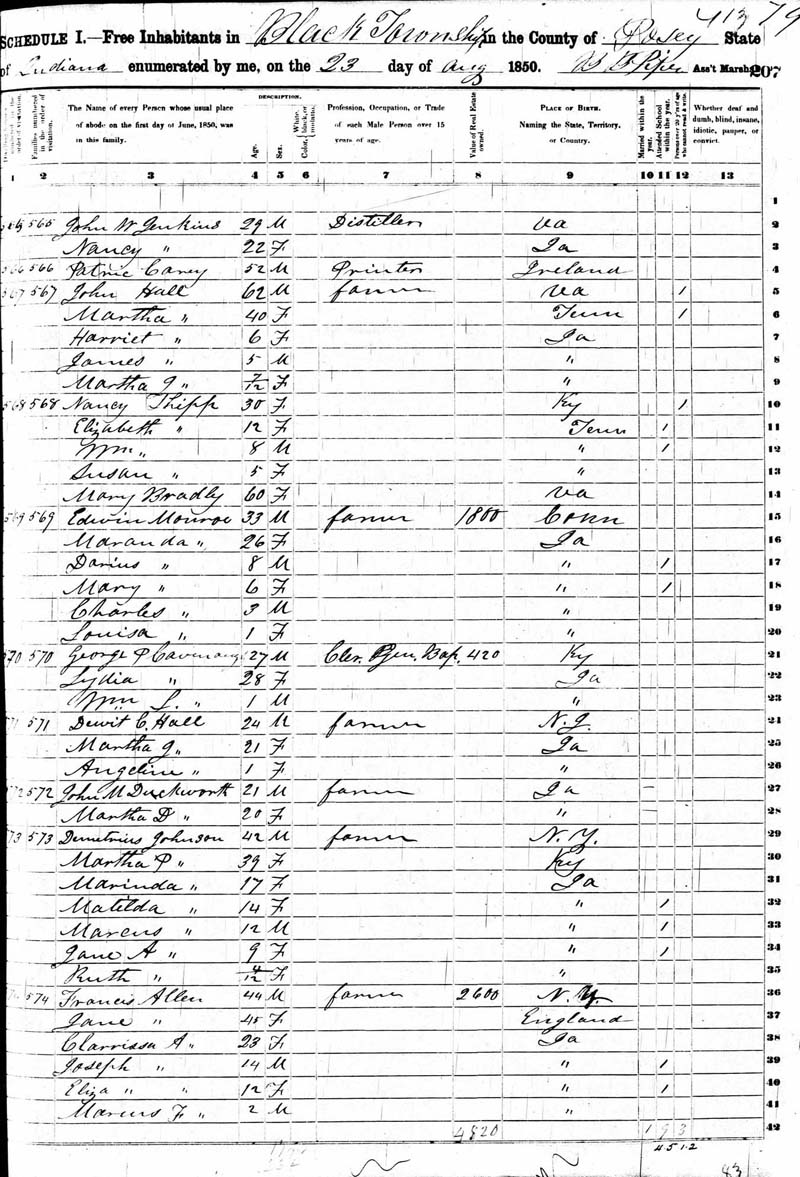 413 79
SCHEDULE I.—Free Inhabitants in Black Township in the County of Posey State
of Indiana enumerated by me, on the 23 day of Aug 1850. Ass't Marshal 207
Families numbered in the order of visitation.
The Name of every Person whose usual place of abode on the first day of June, 1850, was in this family.
DESCRIPTION.
Age. Sex. Color, White, black, or mulatto.
Profession, Occupation, or Trade of each Male Person over 15 years of age.
Value of Real Estate owned.
PLACE OF BIRTH. Naming the State, Territory, or Country.
Married within the year.
Attended School within the year.
Persons over 20 y'rs of age who cannot read & write.
Whether deaf and dumb, blind, insane, idiotic, pauper, or convict.
1 2 3 4 5 6 7 8 9 10 11 12 13
1
565 565 John W Jenkins 29 M Distiller Va 2
Nancy " 22 F Ia 3
566 566 Patric Carey 52 M Printer Ireland 4
567 567 John Hall 62 M farmer Va 1 5
Martha " 40 F Tenn 1 6
Harriet " 6 F Ia 7
James " 5 M " 8
Martha J " 7/12 F " 9
568 568 Nancy Thipp 30 F Ky 1 10
Elizabeth " 12 F Tenn 1 11
Wm " 8 M " 1 12
Susan " 5 F " 13
Mary Bradly 60 F Va 14
569 569 Edwin Monroe 33 M farmer 1800 Conn 15
Maranda " 26 F Ia 16
Darius " 8 M " 1 17
Mary " 6 F " 1 18
Charles " 3 M " 19
Louisa " 1 F " 20
570 570 George P Cavenaugh 27 M Cler. Gen. Bap. 420 Ky 21
Lydia " 28 F Ia 22
Wm L. " 1 M " 23
571 571 Dewit C. Hall 24 M farmer N.J. 24
Martha J " 21 F Ia 25
Angeline " 1 F " 26
572 572 John M Duckworth 21 M farmer Ia — 27
Martha D " 20 F " 28
573 573 Demetrius Johnson 42 M farmer N.Y. 29
Martha P " 39 F Ky 30
Marinda " 17 F Ia 31
Matilda " 14 F " 1 32
Marcus " 12 M " 1 33
Jane A " 9 F " 1 34
Ruth " 4/12 F " 35
574 Francis Allen 44 M farmer 2600 N.Y. 36
Jane " 45 F England 37
Clarrissa A " 23 F Ia 38
Joseph " 14 M " 1 39
Eliza " " 12 F " 1 40
Marcus F " 2 M " 41
4820 1 9 3 42
4 5 1 2
83